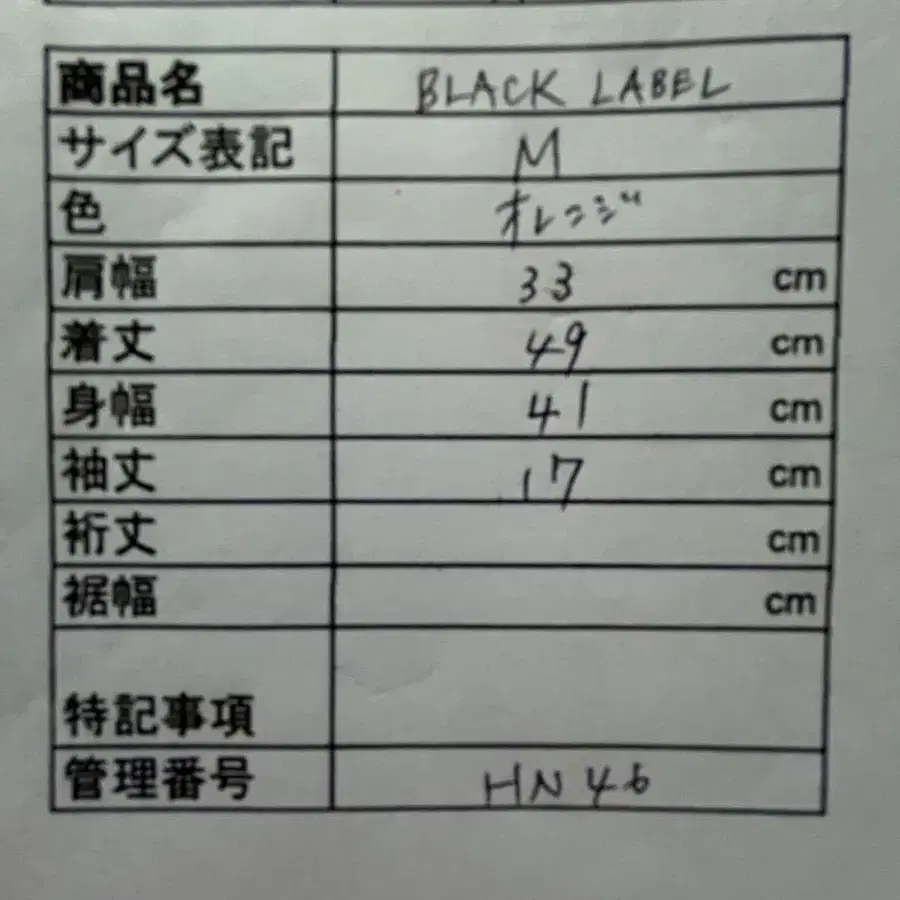 商品名 BLACK LABEL
サイズ表記 M
色 オレンジ
肩幅 33 cm
着丈 49 cm
身幅 41 cm
袖丈 17 cm
裄丈 cm
裾幅 cm
特記事項
管理番号 HN46